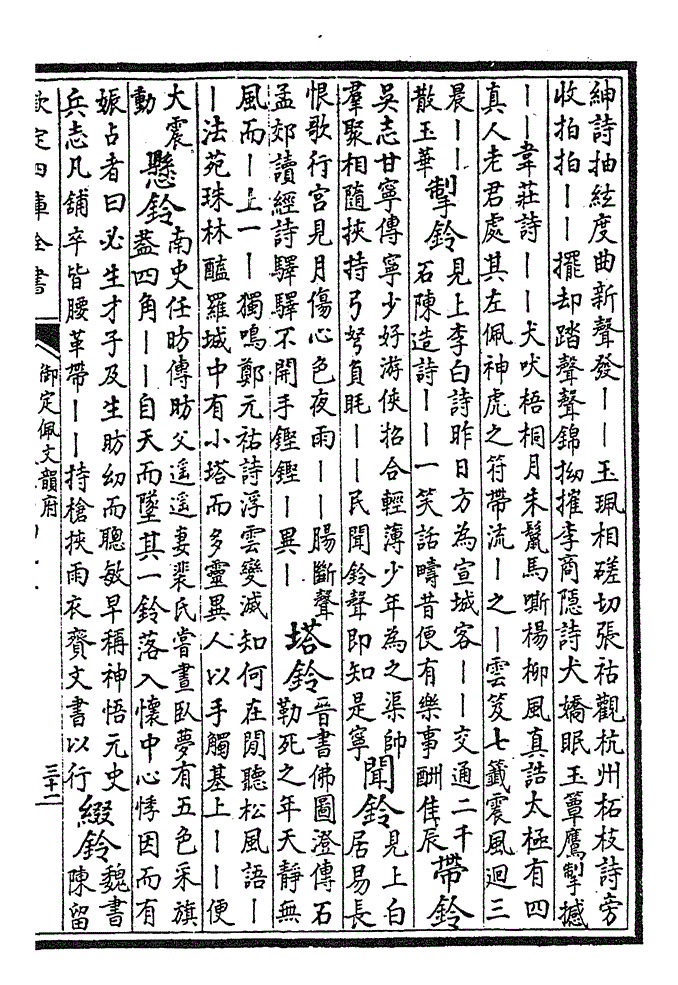 紳詩抽絃度曲新聲發丨丨玉珮相磋切張祜觀杭州柘枝詩旁
收拍拍丨丨擺却踏聲聲錦抝摧李商隱詩犬嬌眠玉簟鷹掣撼
丨丨韋莊詩丨丨犬吠梧桐月朱鬣馬嘶楊柳風真誥太極有四
真人老君處其左佩神虎之符帶流丨之丨雲笈七籤震風迴三
晨丨丨
散玉華
掣鈴
見上李白詩昨日方為宣城客丨丨交通二千
石陳造詩丨丨一笑話疇昔便有樂事酬佳辰
帶鈴
吳志甘寧傳寧少好游俠招合輕薄少年為之渠帥
羣聚相隨挾持弓弩負毦丨丨民聞鈴聲即知是寧
聞鈴
見上白
居易長
恨歌行宮見月傷心色夜雨丨丨腸斷聲
孟郊讀經詩驛驛不開手鏗鏗丨異丨
塔鈴
晉書佛圖澄傳石
勒死之年天靜無
風而丨上一丨獨鳴鄭元祐詩浮雲變滅知何在閒聽松風語丨
丨法苑珠林醯羅城中有小塔而多靈異人以手觸基上丨丨便
大震
動
懸鈴
南史任昉傳昉父遥遥妻裴氏嘗晝臥夢有五色采旗
葢四角丨丨自天而墜其一鈴落入懷中心悸因而有
娠占者曰必生才子及生昉幼而聰敏早稱神悟元史
兵志凡舖卒皆腰革帶丨丨持槍挾雨衣賫文書以行
綴鈴
魏書
陳留
欽定四庫全書
御定佩文韻府
三十二